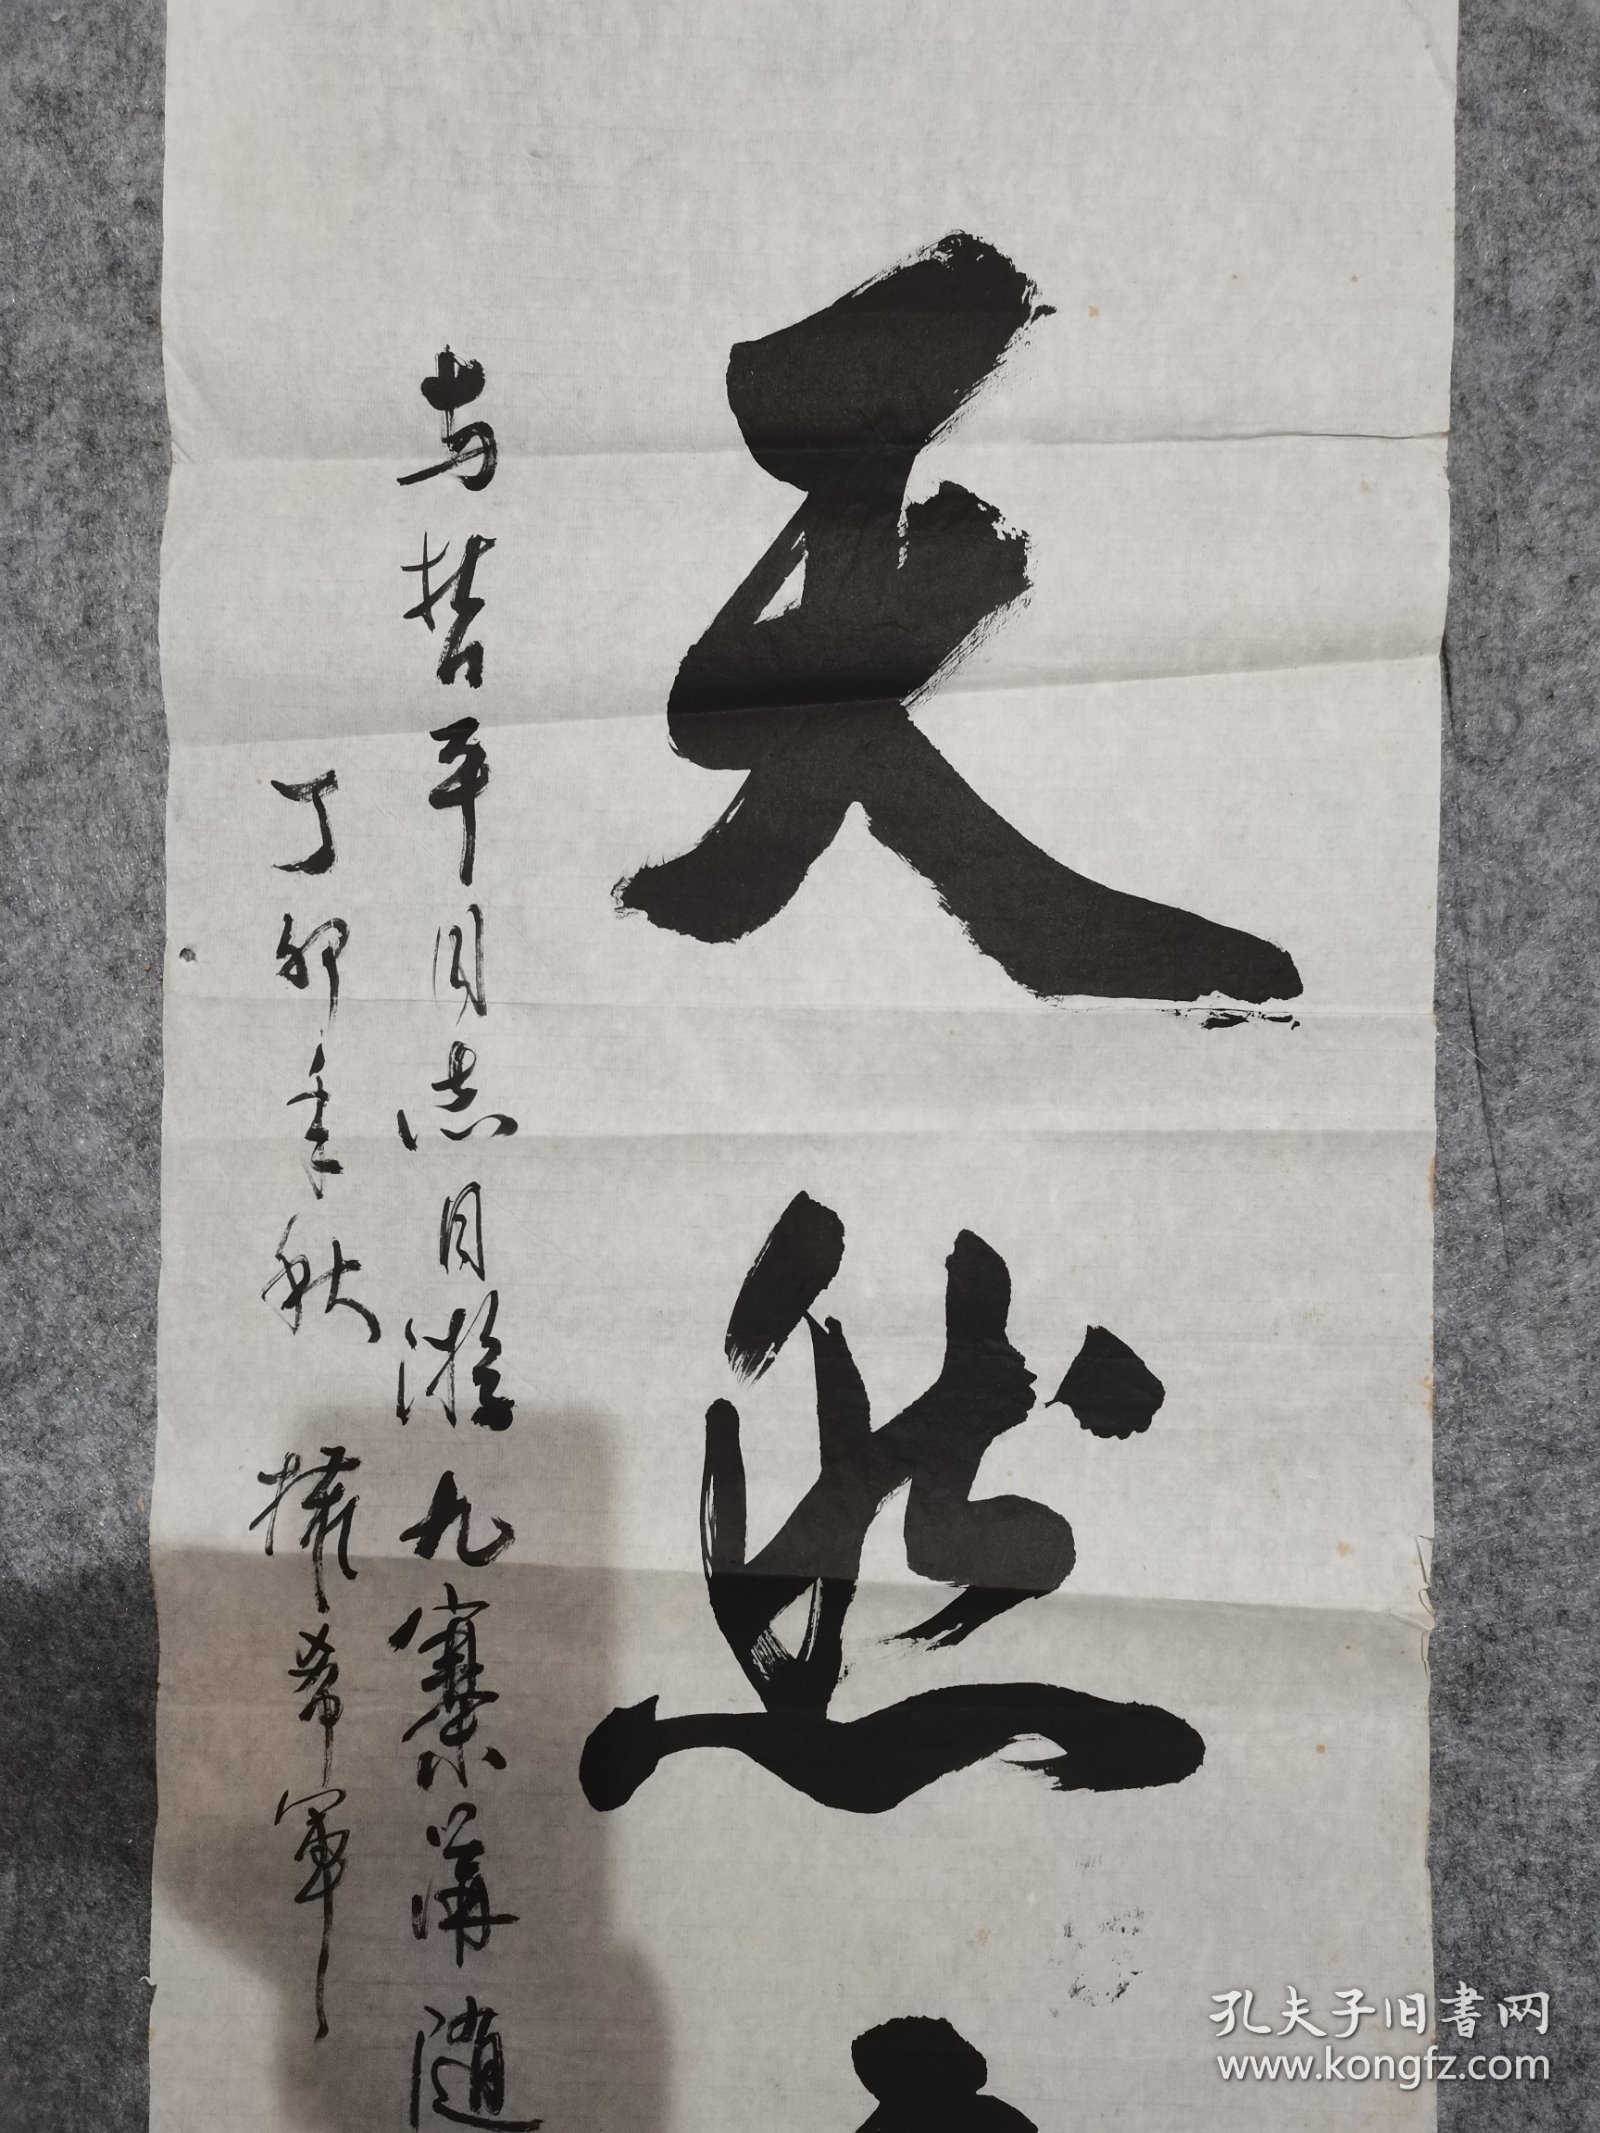 天然
与哲平同志同游九寨沟随
丁卯季秋 希军
孔夫子旧书网
www.kongfz.com